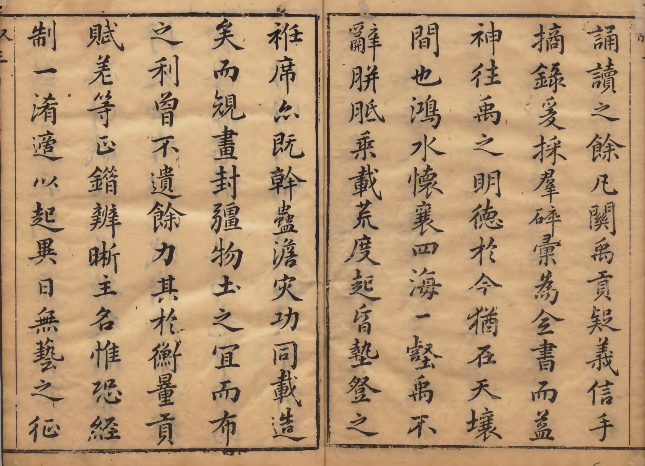 誦讀之餘凡關禹貢疑義信手
摘錄爰採羣碎彙為全書而蓋
神往禹之明德於今猶在天壤
間也鴻水懷襄四海一壑禹不
辭胼胝乘載荒度起昏墊登之
袵席亦既幹蠱澹灾功同載造
矣而規畫封疆物土之宜而布
之利曾不遺餘力其於衡量貢
賦差等正錯辨晰主名惟恐經
制一淆適以起異日無藝之征